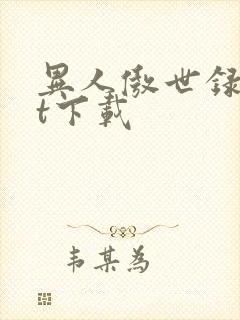 異人傲世録
t下載
韦某為